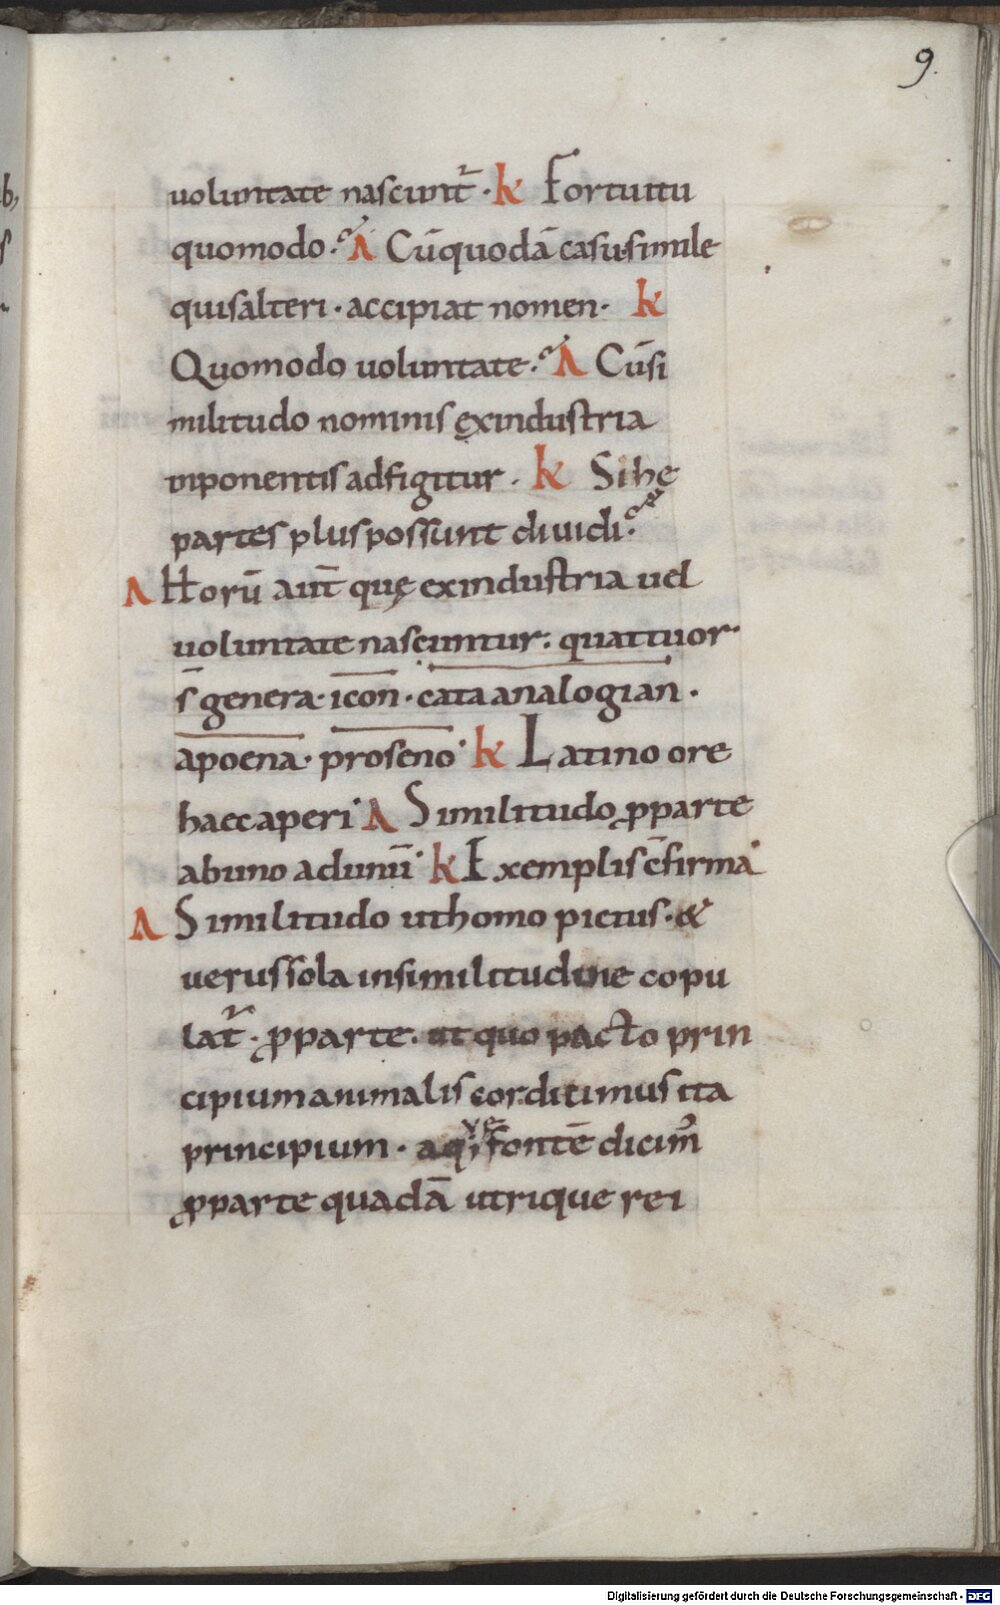 9.
uoluntate nascuntᷣ · k Fortuitu
quomodo·? A Cū quodā casu simile
quis alteri · accipiat nomen · k
Quomodo uoluntate·? A Cū si
militudo nominis ex industria
inponentis adfigitur · k Si hę
partes plus possunt diuidi·?
A Horū aut̄ quę ex industria uel
uoluntate nascuntur · quattuor·
s̄ genera · icon · cata analogian ·
apoena · proseno · k Latino ore
haec aperi · A Similitudo ꝓparte
ab uno ad unū · k Exemplis c̄firma
A Similitudo ut homo pictus · &
uerus sola in similitudine copu
latᷣ · ꝓparte · ut quo pacto prin
cipium animalis cor dicimus ita
principium · aque fontē dicim᷒
ꝓparte quadā utrique rei
Digitalisierung gefördert durch die Deutsche Forschungsgemeinschaft - DFG